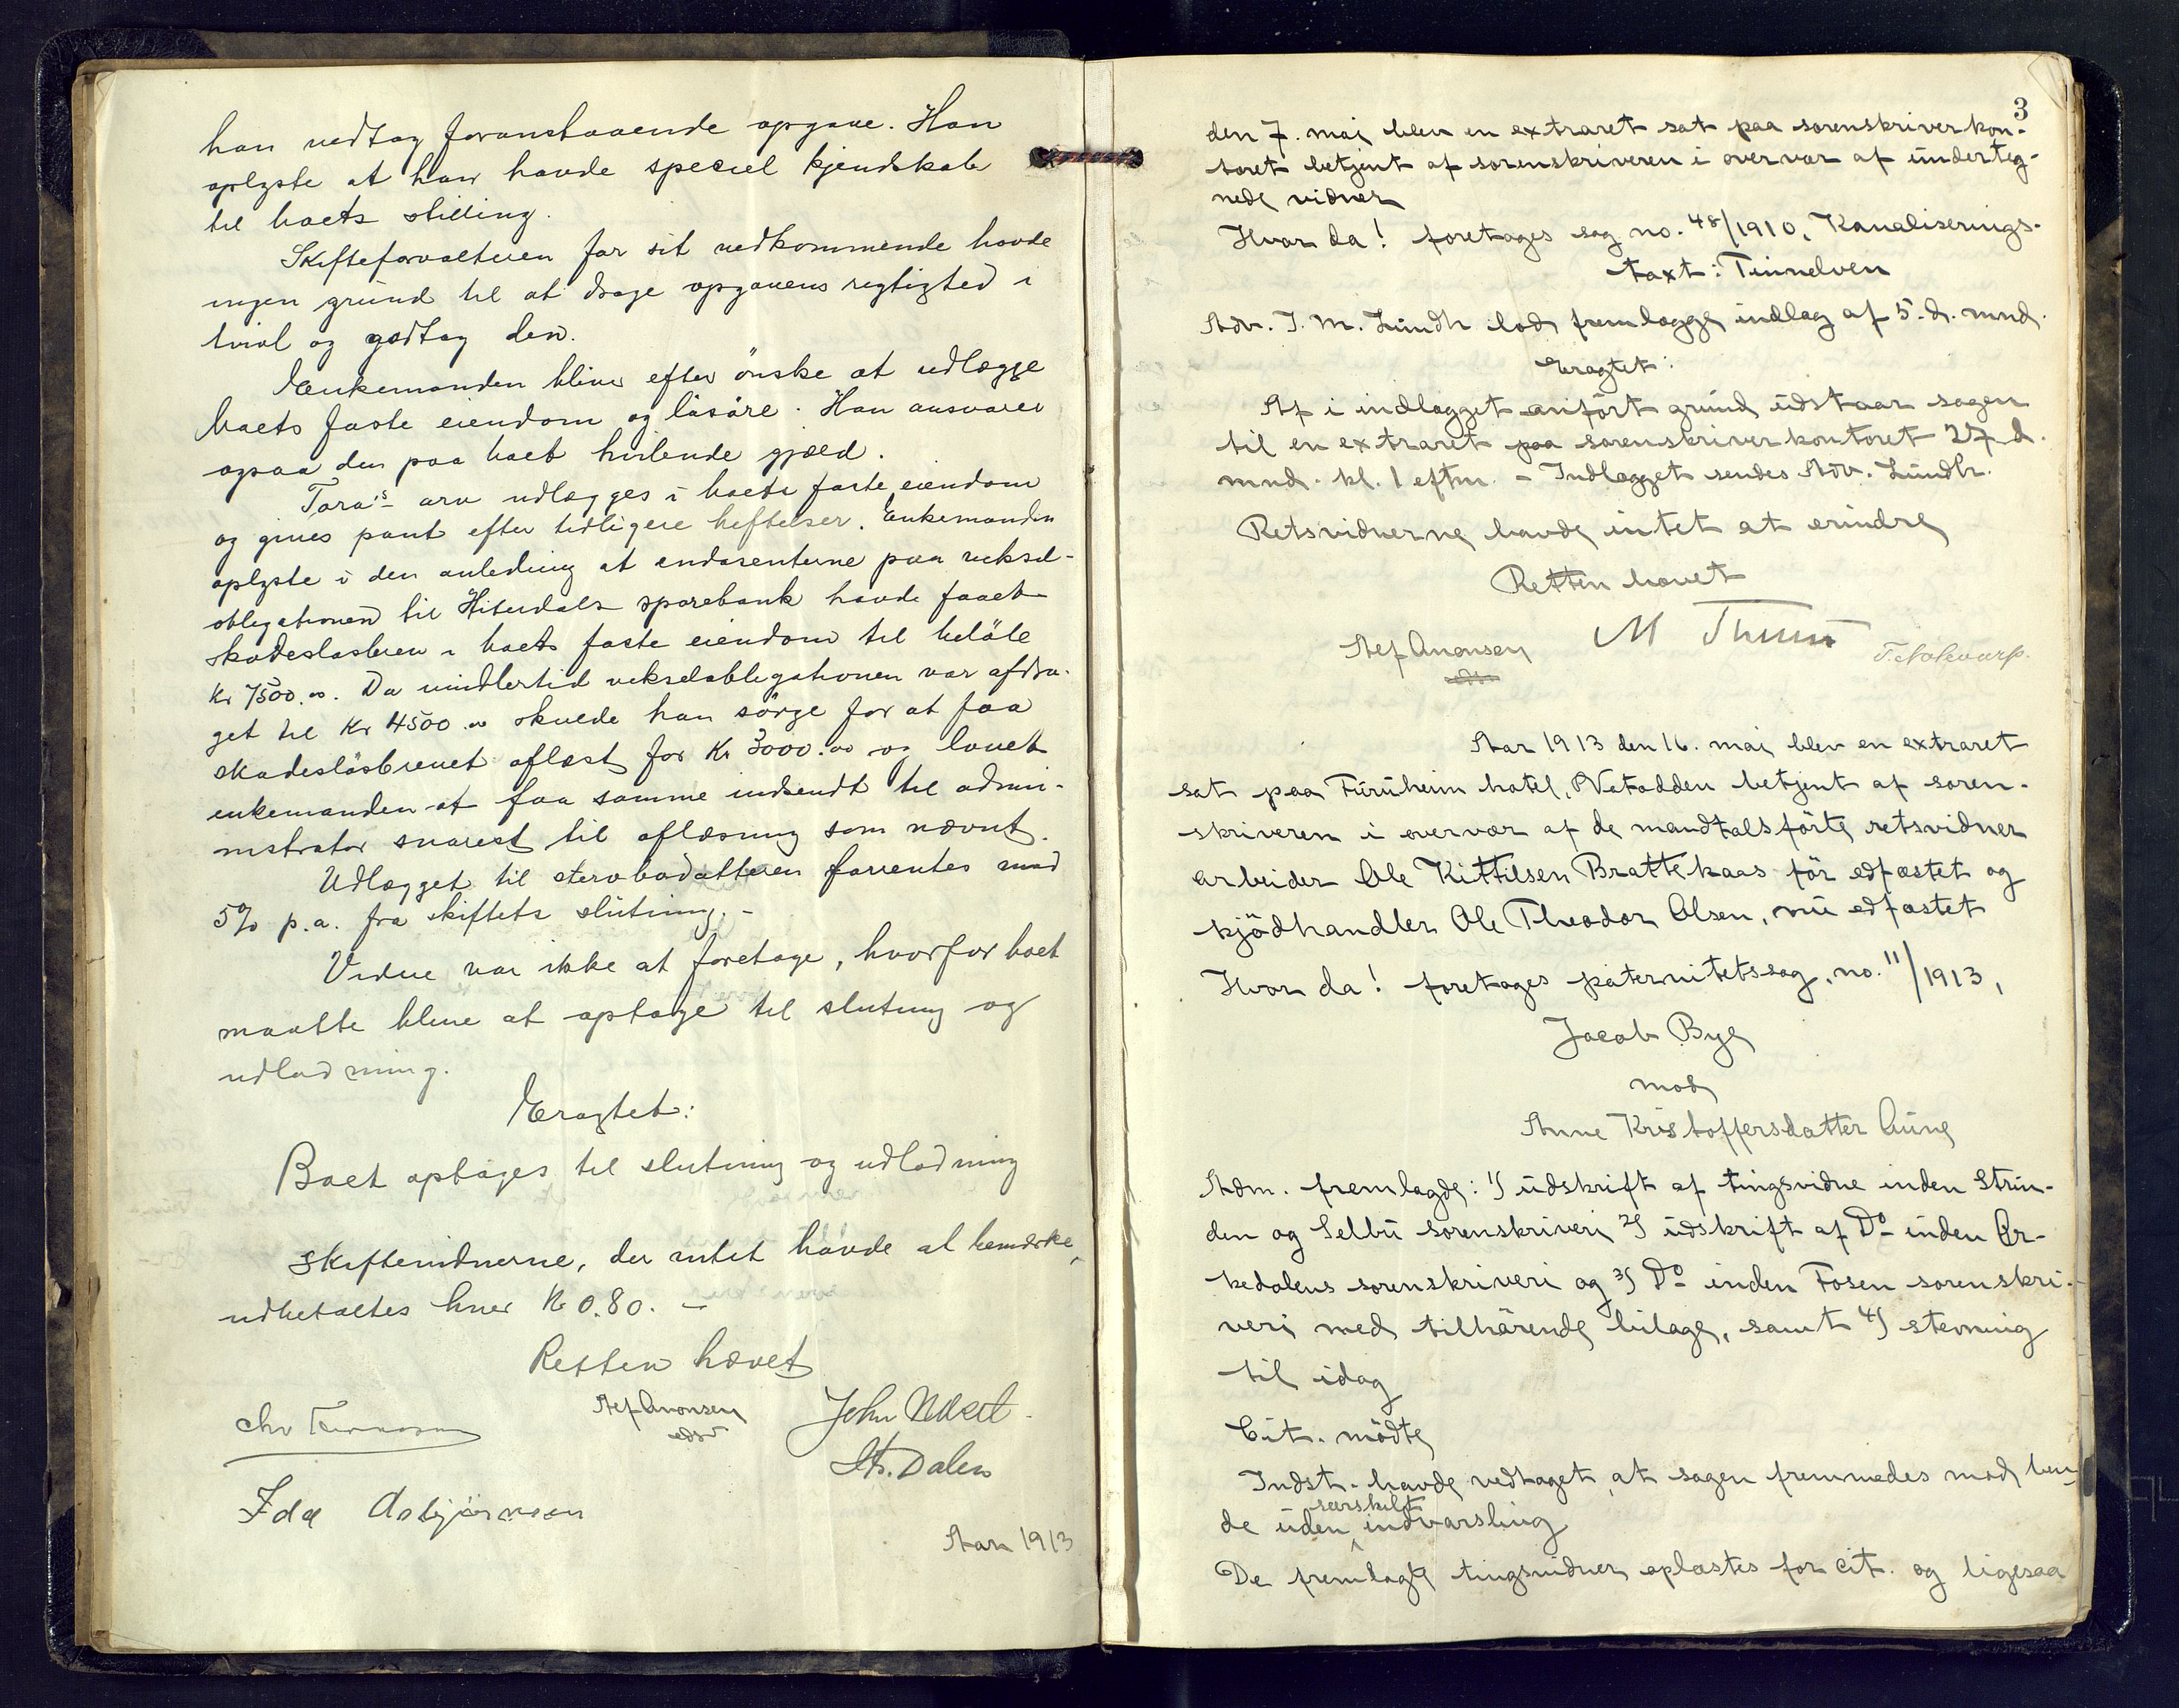 han vedtog foranstaaende opgave. Han
oplyste at han havde speciel kjendskab
til boets stilling.
Skifteforvalteren for sit vedkommende havde
ingen grund til at drage opgavens rigtighed i
tvivl og godtog den.
Enkemanden bliver efter ønske at udlægge
boets faste eiendom og løsøre. Han ansvarer
ogsaa den paa boet hvilende gjæld.
Tora's arv udlægges i boets faste eiendom
og gives pant efter tidligere heftelser. Enkemanden
oplyste i den anledning at endosenterne paa veksel-
obligationen til Hiterdals sparebank havde faaet
skadesløsbrev i boets faste eiendom til beløb
Kr 7500.00. Da imidlertid vekselobligationen var afdra-
get til Kr 4500.00 skulde han sørge for at faa
skadesløsbrevet aflæst for Kr 3000.00 og lovet
enkemanden at faa samme indsendt til admi-
nistrator snarest til aflæsning som nævnt.
Udlægget til stervbodatteren forrentes med
5% p.a. fra skiftets slutning. -
Videre var ikke at foretage, hvorfor boet
maatte blive at optage til slutning og
udlodning.
Eragtet:
Boet optages til slutning og udlodning
Skiftevidnerne, der intet havde at bemærke,
udbetaltes hver Kr 0.80. -
Retten hævet
Alf Aronsen
edsv
John
St. Dalen
Ida Asbjørnsen
Aar 1913
3
den 7. mai blev en extraret sat paa sorenskriverkon-
toret betjent af sorenskriveren i overvær af underteg-
nede vidner
Hvor da! foretages sag no. 48/1910, Kanaliserings-
taxt: Tinnelven
Adv. J. M. Lundh lod fremlægge indlæg af 5. d. mnd.
Eragtet:
Af i indlægget anført grund udstaar sagen
til en extraret paa sorenskriverkontoret 27 d.
mnd. kl. 1 eftm. - Indlægget sendes Adv. Lundh.
Retsvidnerne havde intet at erindre
Retten hævet
Alf Aronsen
edsv
M Thun
Aar 1913 den 16. mai blev en extraret
sat paa Furuheim hotel, Notodden betjent af soren-
skriveren i overvær af de mandtalsførte retsvidner
arbeider Ole Kittilsen Brattekaas før edfæstet og
kjødhandler Ole Theodor Olsen, nu edfæstet
Hvor da! foretages paternitetssag, no. 11/1913,
Jacob Bye
mod
Anne Kristoffersdatter Aune
Adm. fremlagde: 1) udskrift af tingsvidne inden Strin-
den og Selbu sorenskriveri 2) udskrift af Do inden Or-
kedalens sorenskriveri og 3) Do inden Fosen sorenskri-
veri med tilhørende bilage, samt 4) stevning
til idag
Cit. mødte
Indst. havde vedtaget, at sagen fremmedes mod hen-
de uden særskilt indvarsling
De fremlagte tingsvidner oplæstes for cit. og ligesaa